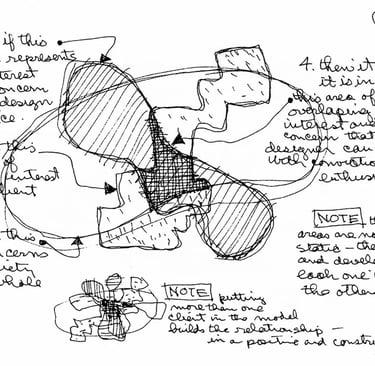 if this
represents
terest
concern
design
ce.
this
interest
ient
this
ncerns
ciety
whole
4. then it
it is in
this area of
overlaping
interest and
concern that
designer can
with conviction
enthus
NOTE
areas are no
static - the
and develo
each one
the other
NOTE putting
more than one
client in the model
builds the relationship -
in a positive and constr